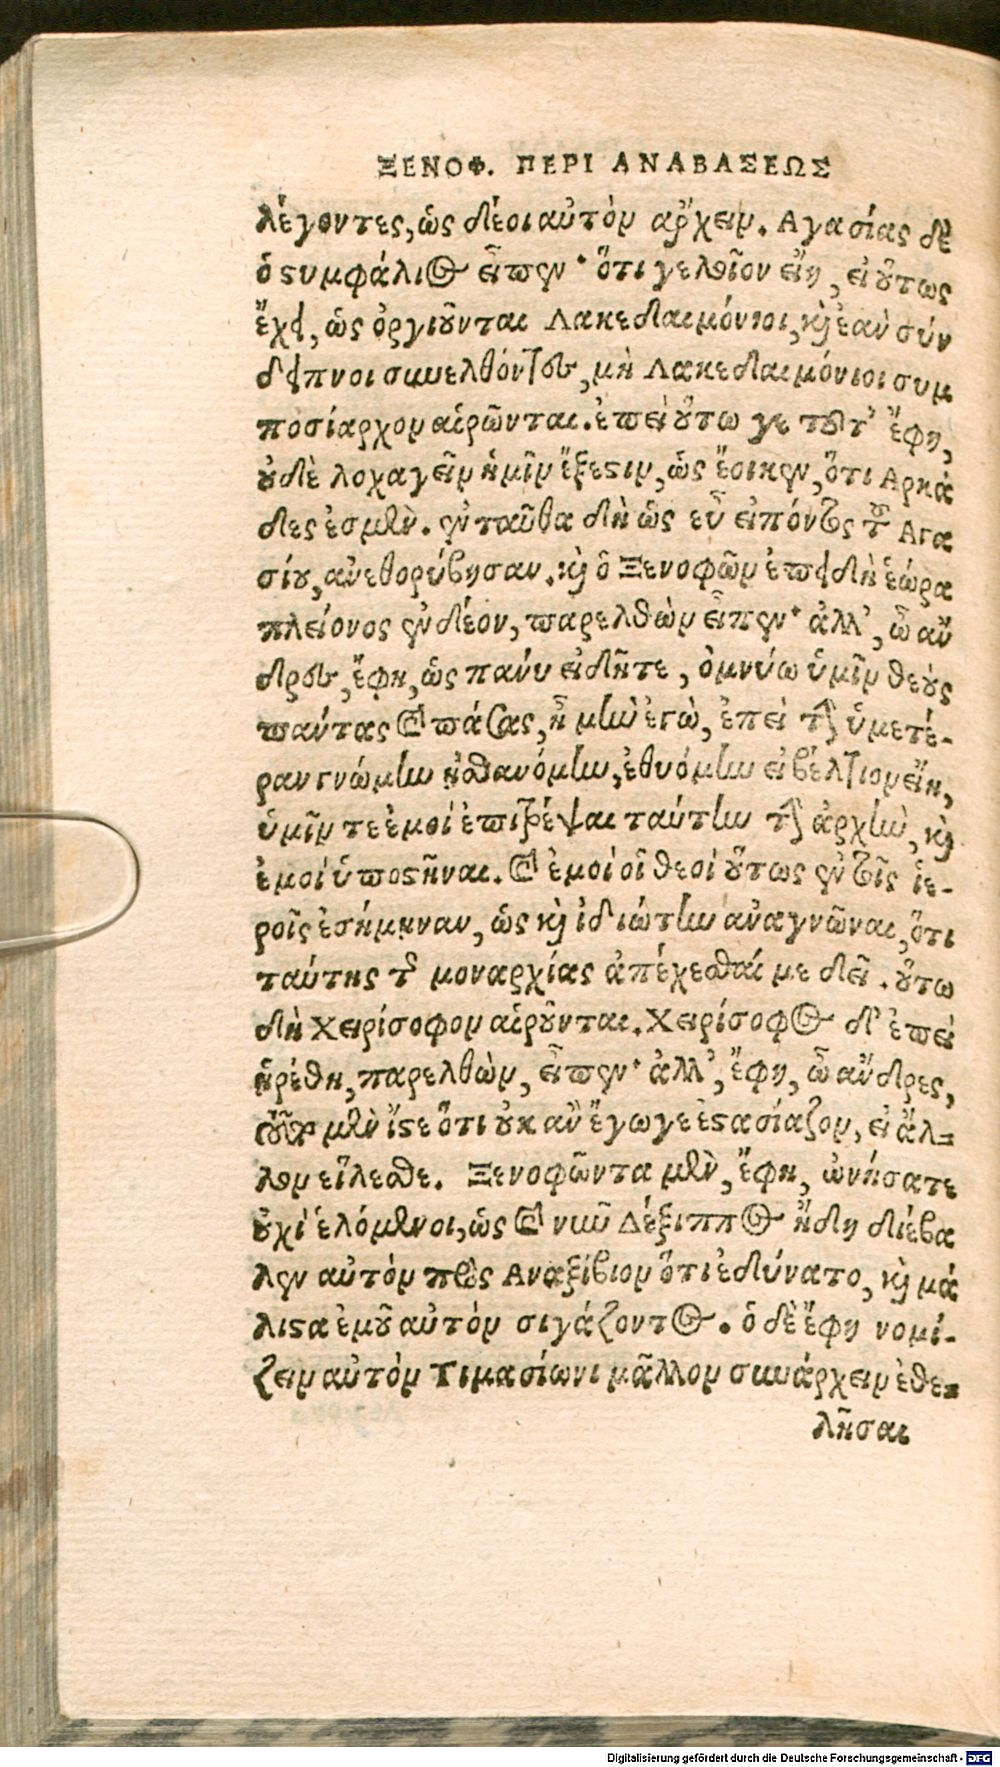 ΞΕΝΟΦ. ΠΕΡΙ ΑΝΑΒΑΣΕΩΣ
λέγοντες, ὡς δέοι αὐτὸν ἄρχειν. Αγασίας δὲ
ὁ ϛυμφάλιος εἶπεν· ὅτι γελοῖον εἴη, εἰ οὕτως
ἔχει, ὡς ὀργιοῦνται Λακεδαιμόνιοι, καὶ ἐὰν σύν
δειπνοι συνελθόντες, μὴ Λακεδαιμόνιοι συμ
ποσίαρχον αἱρῶνται. ἐπεὶ οὕτω γε τοῦτ' ἔφη,
οὐδὲ λοχαγεῖν ἡμῖν ἔξεϛιν, ὡς ἔοικεν, ὅτι Αρκά
δες ἐσμέν. ἐνταῦθα δὴ ὡς εὖ εἰπόντος τοῦ Αγα
σίου, ἀνεθορύβησαν. καὶ ὁ Ξενοφῶν ἐπειδὴ ἑώρα
πλείονος ἐνδέον, παρελθὼν εἶπεν· ἀλλ', ὦ ἄν
δρες, ἔφη, ὡς πάνυ εἰδῆτε, ὀμνύω ὑμῖν θεοὺς
πάντας καὶ πάσας, ἦ μὴν ἐγὼ, ἐπεὶ τὴν ὑμετέ-
ραν γνώμην ᾐσθανόμην, ἐθυόμην εἰ βέλτιον εἴη,
ὑμῖν τε ἐμοί ἐπιτρέψαι ταύτην τὴν ἀρχὴν, καὶ
ἐμοί ὑποϛῆναι. καὶ ἐμοί οἱ θεοί οὕτως ἐν τοῖς ἱε-
ροῖς ἐσήμηναν, ὡς καὶ ἰδιώτην ἀναγνῶναι, ὅτι
ταύτης τῆς μοναρχίας ἀπέχεσθαί με δεῖ. οὕτω
δὴ Χειρίσοφον αἱροῦνται. Χειρίσοφος δ' ἐπεὶ
ᾑρέθη, παρελθὼν, εἶπεν· ἀλλ', ἔφη, ὦ ἄνδρες,
τοῦτο μὲν ἴϛε ὅτι οὐκ ἂν ἔγωγε ἐϛασίαζον, εἰ ἄλ-
λον εἵλεσθε. Ξενοφῶντα μὲν, ἔφη, ὠνήσατε
οὐχὶ ἑλόμενοι, ὡς καὶ νῦν Δέξιππος ἤδη διέβα
λεν αὐτὸν πρὸς Αναξίβιον ὅτι ἐδύνατο, καὶ μά
λιϛα ἐμοῦ αὐτὸν σιγάζοντος. ὁ δὲ ἔφη νομί-
ζειν αὐτὸν Τιμασίωνι μᾶλλον συνάρχειν ἐθε-
λῆσαι
Digitalisierung gefördert durch die Deutsche Forschungsgemeinschaft - DFG